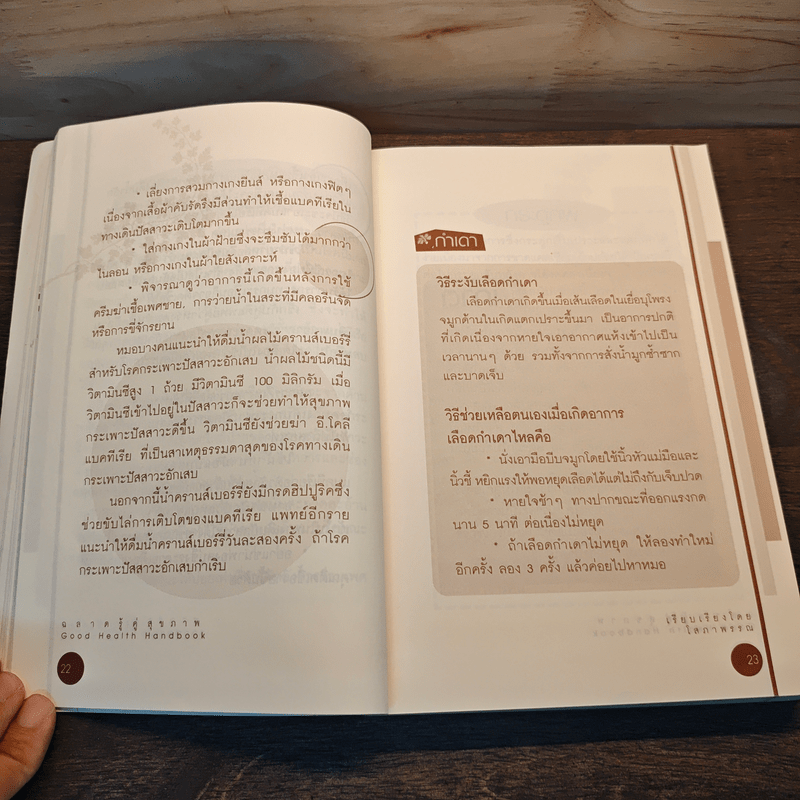 • เลี่ยงการสวมกางเกงยีนส์ หรือกางเกงฟิตๆ
เนื่องจากเสื้อผ้าคับรัดรึงมีส่วนทำให้เชื้อแบคทีเรียใน
ทางเดินปัสสาวะเติบโตมากขึ้น
• ใส่กางเกงในผ้าฝ้ายซึ่งจะซึมซับได้มากกว่า
ไนลอน หรือกางเกงในผ้าใยสังเคราะห์
• พิจารณาดูว่าอาการนี้เกิดขึ้นหลังการใช้
ครีมฆ่าเชื้อเพศชาย, การว่ายน้ำในสระที่มีคลอรีนจัด
หรือการขี่จักรยาน
หมอบางคนแนะนำให้ดื่มน้ำผลไม้ครานส์เบอร์รี่
สำหรับโรคกระเพาะปัสสาวะอักเสบ น้ำผลไม้ชนิดนี้มี
วิตามินซีสูง 1 ถ้วย มีวิตามินซี 100 มิลิกรัม เมื่อ
วิตามินซีเข้าไปอยู่ในปัสสาวะก็จะช่วยทำให้สุขภาพ
กระเพาะปัสสาวะดีขึ้น วิตามินซียังช่วยฆ่า อี.โคลี
แบคทีเรีย ที่เป็นสาเหตุธรรมดาสุดของโรคทางเดิน
กระเพาะปัสสาวะอักเสบ
นอกจากนี้น้ำครานส์เบอร์รี่ยังมีกรดฮิปปูริคซึ่ง
ช่วยขับไล่การเติบโตของแบคทีเรีย แพทย์อีกราย
แนะนำให้ดื่มน้ำครานส์เบอร์รี่วันละสองครั้ง ถ้าโรค
กระเพาะปัสสาวะอักเสบกำเริบ
ฉลาดรู้คู่สุขภาพ
Good Health Handbook
22
กำเดา
วิธีระงับเลือดกำเดา
เลือดกำเดาเกิดขึ้นเมื่อเส้นเลือดในเยื่อบุโพรง
จมูกด้านในเกิดแตกเปราะขึ้นมา เป็นอาการปกติ
ที่เกิดเนื่องจากหายใจเอาอากาศแห้งเข้าไปเป็น
เวลานานๆ ด้วย รวมทั้งจากการสั่งน้ำมูกซ้ำซาก
และบาดเจ็บ
วิธีช่วยเหลือตนเองเมื่อเกิดอาการ
เลือดกำเดาไหลคือ
• นั่งเอามือบีบจมูกโดยใช้นิ้วหัวแม่มือและ
นิ้วชี้ หยิกแรงให้พอหยุดเลือดได้แต่ไม่ถึงกับเจ็บปวด
• หายใจช้าๆ ทางปากขณะที่ออกแรงกด
นาน 5 นาที ต่อเนื่องไม่หยุด
• ถ้าเลือดกำเดาไม่หยุด ให้ลองทำใหม่
อีกครั้ง ลอง 3 ครั้ง แล้วค่อยไปหาหมอ
เรียบเรียงโดย
โสภาพรรณ
23